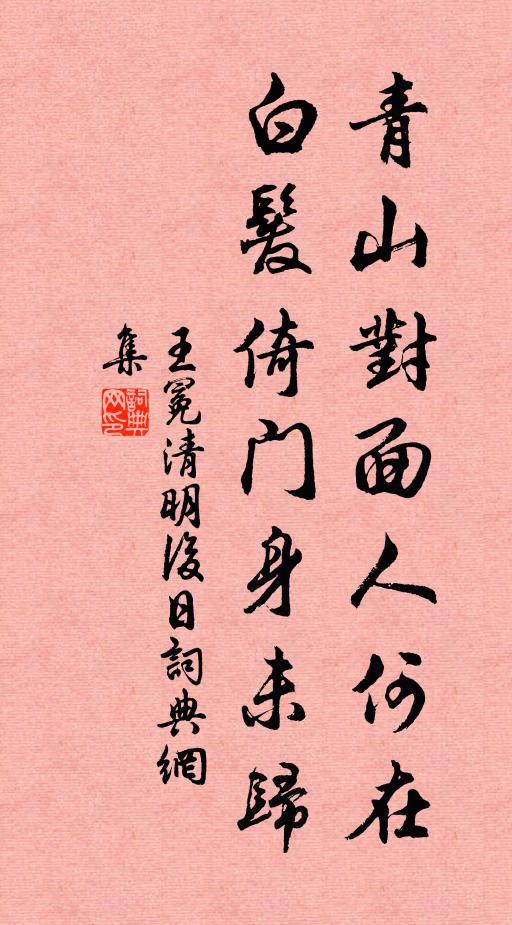 青山對面人何在
白髮倚門身未歸
王冕清明後日詞典網
集
詞典
网印